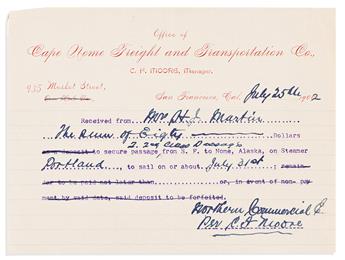 Office of
Cape Nome Freight and Transportation Co.,
C. H. MOORE, Manager,
935 Market Street,
San Francisco, Cal. July 25th 1902
Received from Mr. H. J. Martin
The Sum of Eighty Dollars
2. 2nd Class Passage
as deposit to secure passage from S. F. to Nome, Alaska, on Steamer
Portland, to sail on or about July 31st; remain-
der to be paid not later than or, in event of non-pay
ment by said date, said deposit to be forfeited.
Northern Commercial C.
Per C H Moore